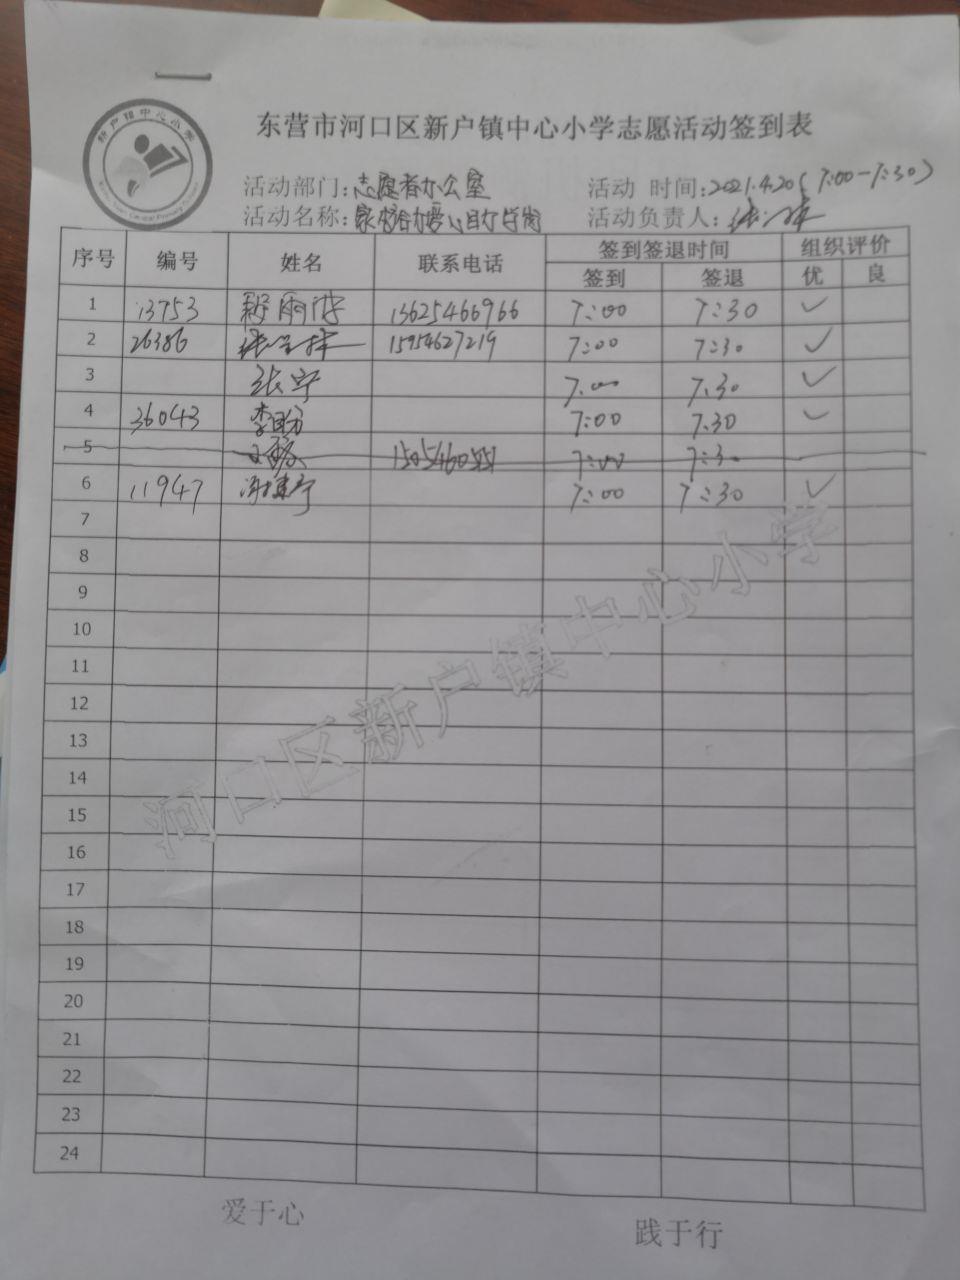 新户镇中心小学
东营市河口区新户镇中心小学志愿活动签到表
活动部门:志愿者办公室 活动 时间:2021.4.20(7:00-7:30)
活动名称: 活动负责人:
序号 编号 姓名 联系电话 签到签退时间 组织评价
签到 签退 优 良
1 13753 13625466966 7:00 7:30 ✓
2 26386 15954627219 7:00 7:30 ✓
3 张宁 7:00 7:30 ✓
4 36043 李盼 7:00 7:30 ✓
5 7:00 7:30
6 11947 7:00 7:30 ✓
7
8
9
10
11
12
13
14
15
16
17
18
19
20
21
22
23
24
河口区新户镇中心小学
爱于心 践于行